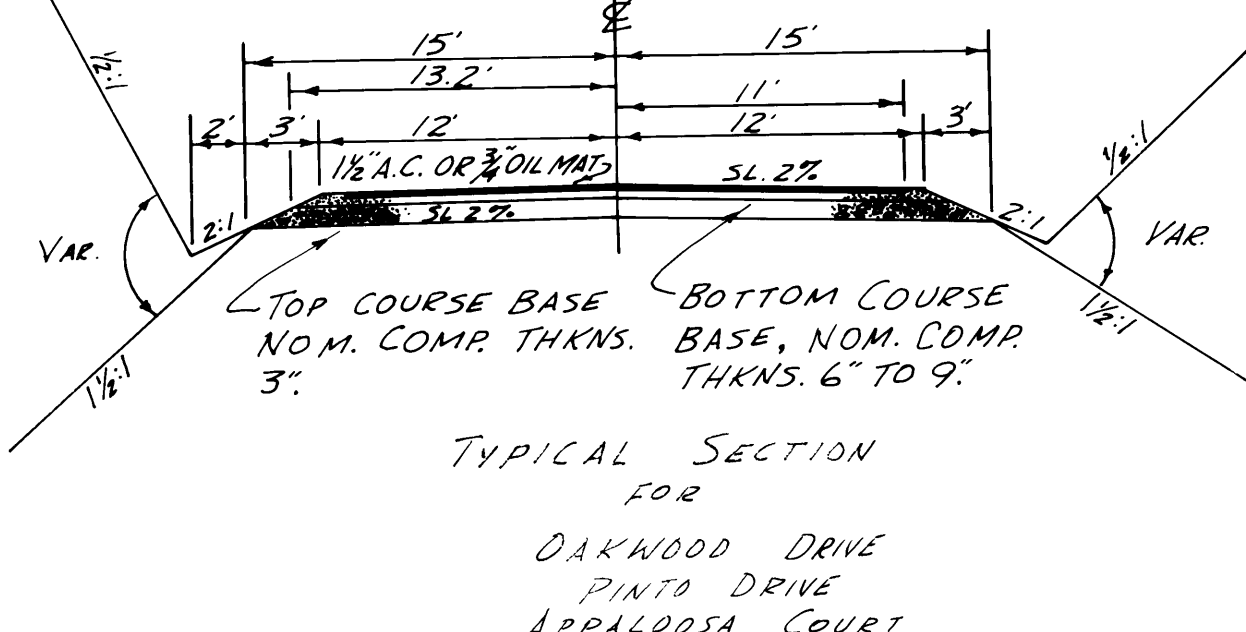 ℄
15' 15'
13.2' 11'
2' 3' 12' 12' 3'
1½:1
1½" A.C. OR ¾" OIL MAT SL. 2%
½:1
2:1 SL 2% 2:1
VAR. VAR.
TOP COURSE BASE
NOM. COMP. THKNS.
3".
BOTTOM COURSE
BASE, NOM. COMP.
THKNS. 6" TO 9".
1½:1 1½:1
TYPICAL SECTION
FOR
OAKWOOD DRIVE
PINTO DRIVE
APPALOOSA COURT